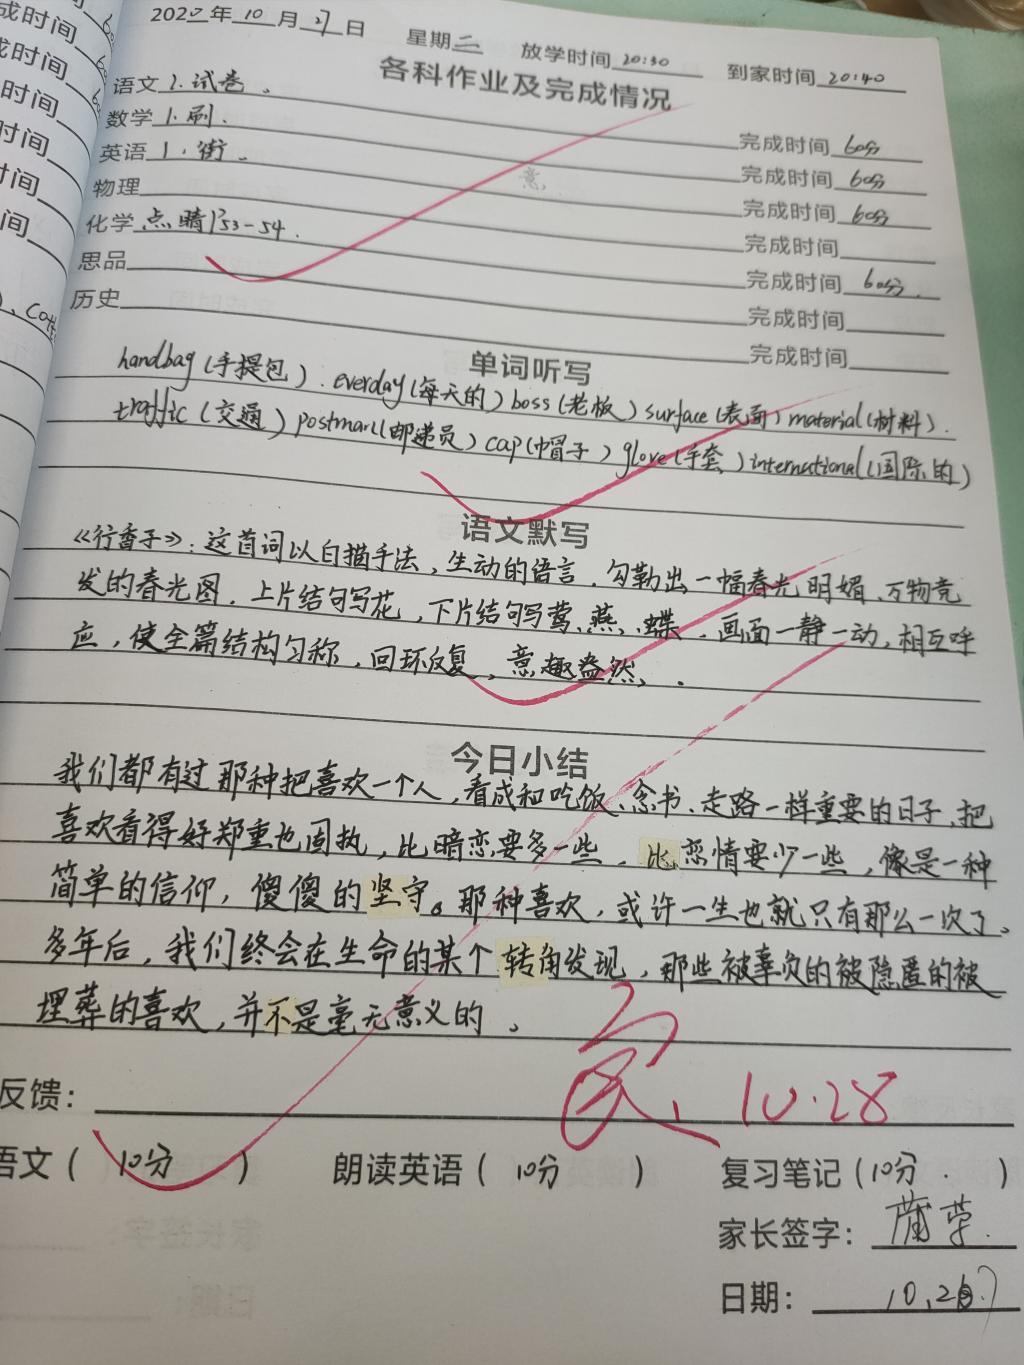 2020年10月27日 星期二 放学时间20:30 到家时间20:40
各科作业及完成情况
语文1.试卷. 完成时间60分
数学1.刷. 完成时间60分
英语1.街. 完成时间60分
物理 完成时间
化学点睛P53-54. 完成时间60分.
思品 完成时间
历史 完成时间
单词听写
handbag(手提包).everday(每天的)boss(老板)surface(表面)material(材料).
traffic(交通)postman(邮递员)cap(帽子)glove(手套)international(国际的)
语文默写
《行香子》:这首词以白描手法,生动的语言,勾勒出一幅春光明媚、万物竞
发的春光图.上片结句写花,下片结句写莺、燕、蝶.画面一静一动,相互呼
应,使全篇结构匀称,回环反复,意趣盎然.
今日小结
我们都有过那种把喜欢一个人,看成和吃饭、念书、走路一样重要的日子,把
喜欢看得好郑重也固执,比暗恋要多一些,比恋情要少一些,像是一种
简单的信仰,傻傻的坚守。那种喜欢,或许一生也就只有那么一次了。
多年后,我们终会在生命的某个转角发现,那些被辜负的被隐匿的被
埋葬的喜欢,并不是毫无意义的。
10.28
反馈:
语文(10分) 朗读英语(10分) 复习笔记(10分.)
家长签字:
日期: